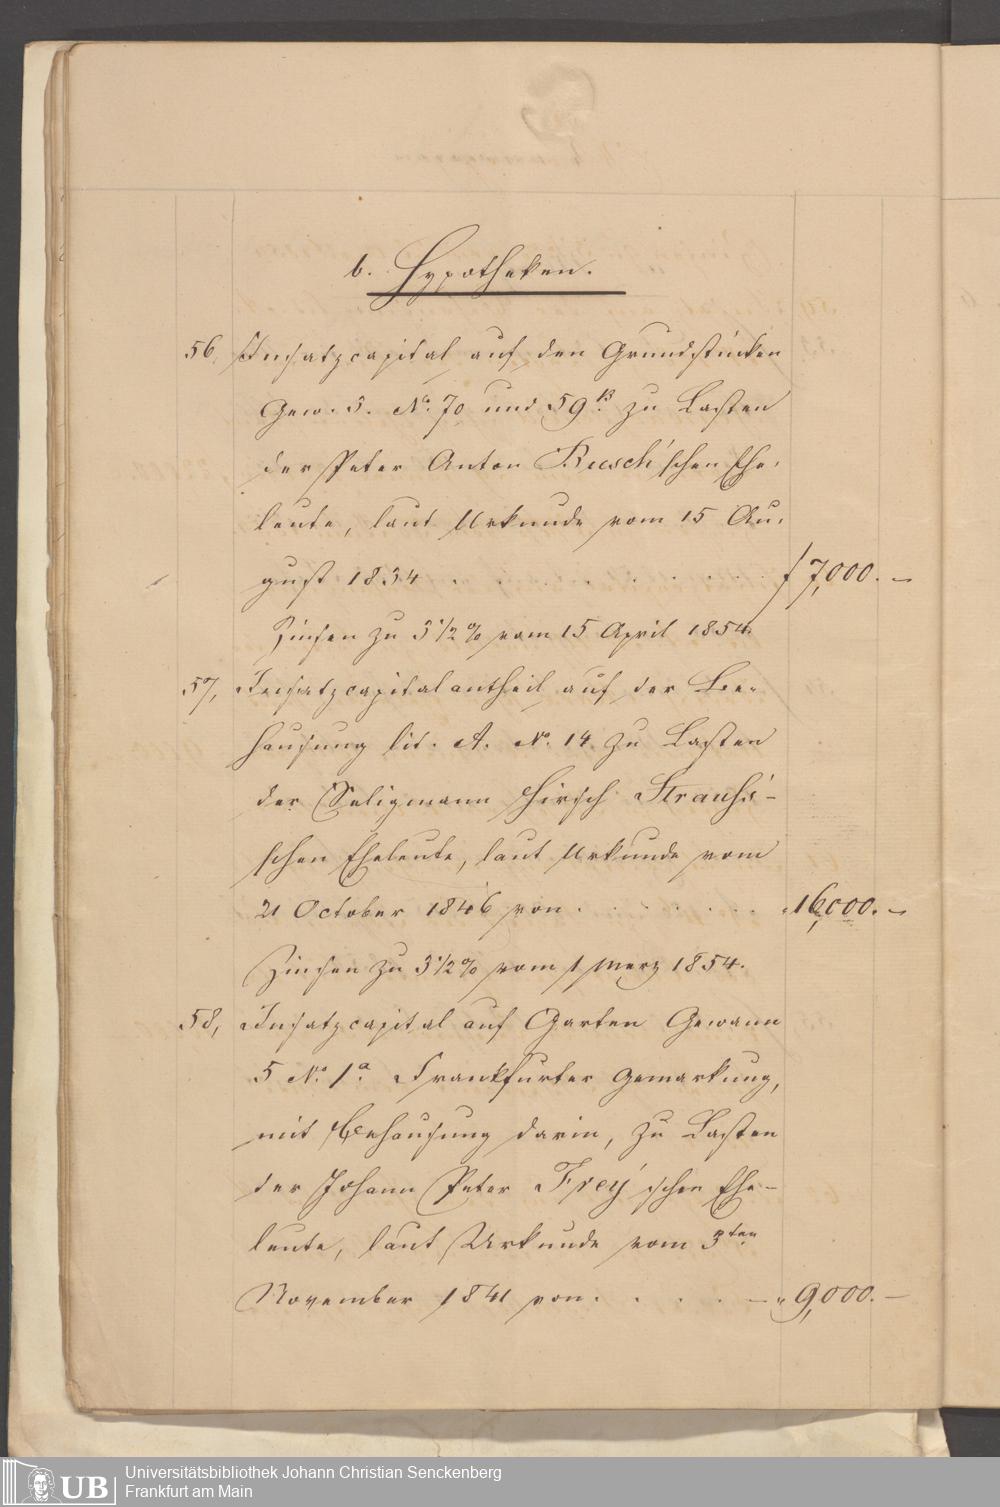 b. Hypotheken.
56, Insatzcapital auf den Grundstücken
Gew. 5. No. 70 und 59 B. zu Lasten
der Peter Anton Busch'schen Ehe-
leute, laut Urkunde vom 15 Au-
gust 1834 . . . . . . . . . f 7,000. –
Zinsen zu 3 1/2 % vom 15 April 1854.
57, Insatzcapitalantheil auf der Be-
hausung lit. A. No. 14 zu Lasten
der Seligmann Hirsch Strauß'-
schen Eheleute, laut Urkunde vom
21 October 1846 von . . . . . . . " 16,000. –
Zinsen zu 3 1/2 % vom 1 Merz 1854.
58, Insatzcapital auf Garten Gewann
5 No. 1 a. Frankfurter Gemarkung,
mit Behausung darin, zu Lasten
der Johann Peter Frey'schen Ehe-
leute, laut Urkunde vom 3ten
November 1841 von . . . . . – " 9,000. –
UB Universitätsbibliothek Johann Christian Senckenberg
Frankfurt am Main